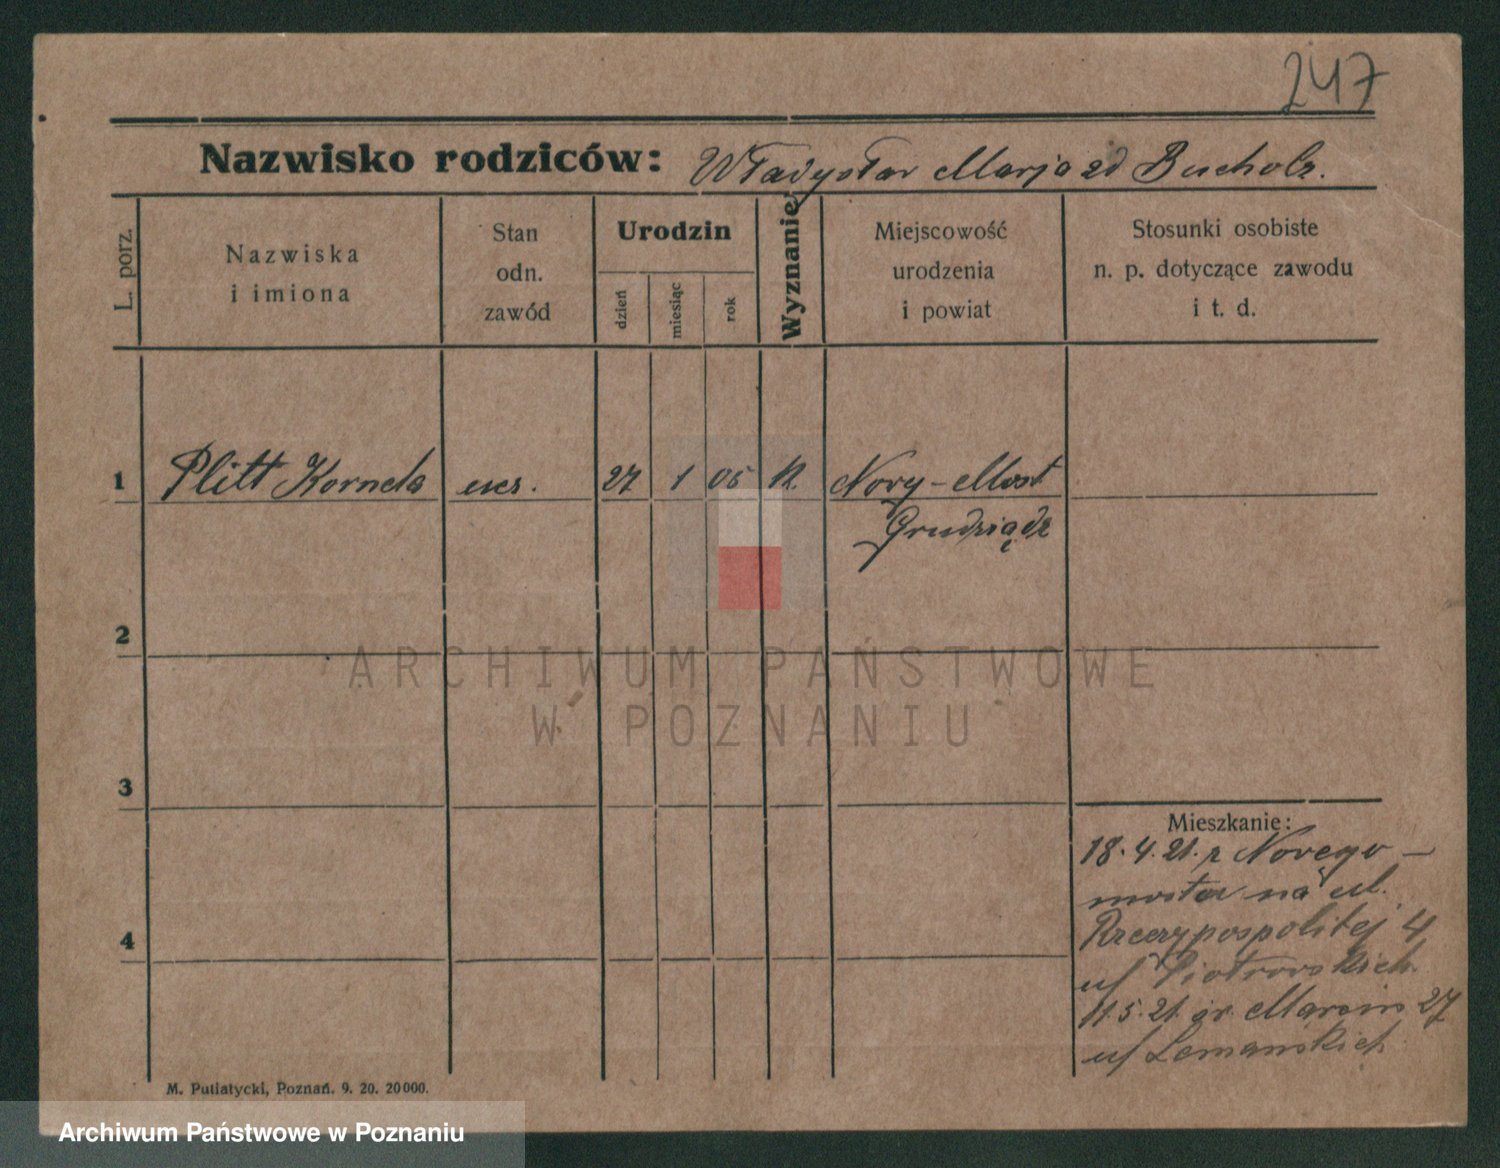 247
Nazwisko rodziców: Władysław Marja zd Bucholz.
L. porz.
Nazwiska
i imiona
Stan
odn.
zawód
Urodzin
dzień
miesiąc
rok
Wyznanie
Miejscowość
urodzenia
i powiat
Stosunki osobiste
n. p. dotyczące zawodu
i t. d.
1 Plitt Kornela ucz. 27 1 05 k. Nowy-Most
Grudziądz
2
3
4
Mieszkanie:
18.4.21. z Nowego-
mosta na ul.
Rzeczypospolitej 4
u/ Piotrowskich
11.5.21. św. Marcin 27
u/ Lemańskich
M. Putiatycki, Poznań. 9. 20. 20000.
ARCHIWUM PAŃSTWOWE
W POZNANIU
Archiwum Państwowe w Poznaniu